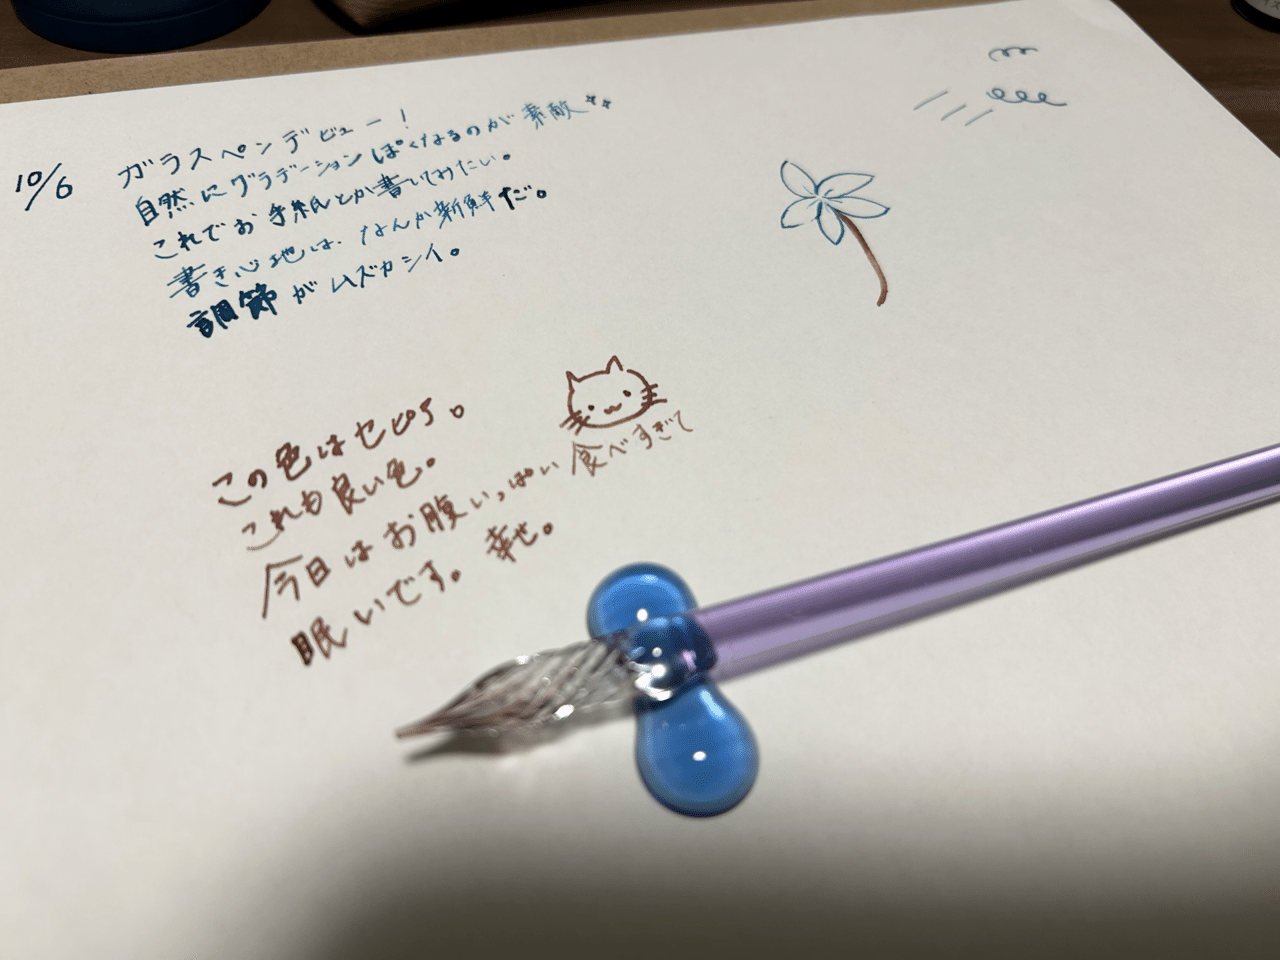 10/6
ガラスペンデビュー!
自然にグラデーションぽくなるのが素敵
これでお手紙とか書いてみたい。
書き心地は、なんか新鮮だ。
調節がムズカシイ。
この色はセピア。
これも良い色。
今日はお腹いっぱい食べすぎて
眠いです。幸せ。